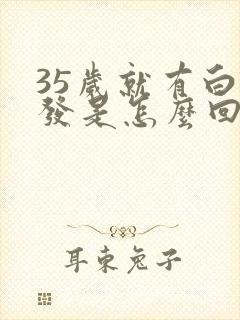 35歲就有白
發是怎麼回
耳東兔子